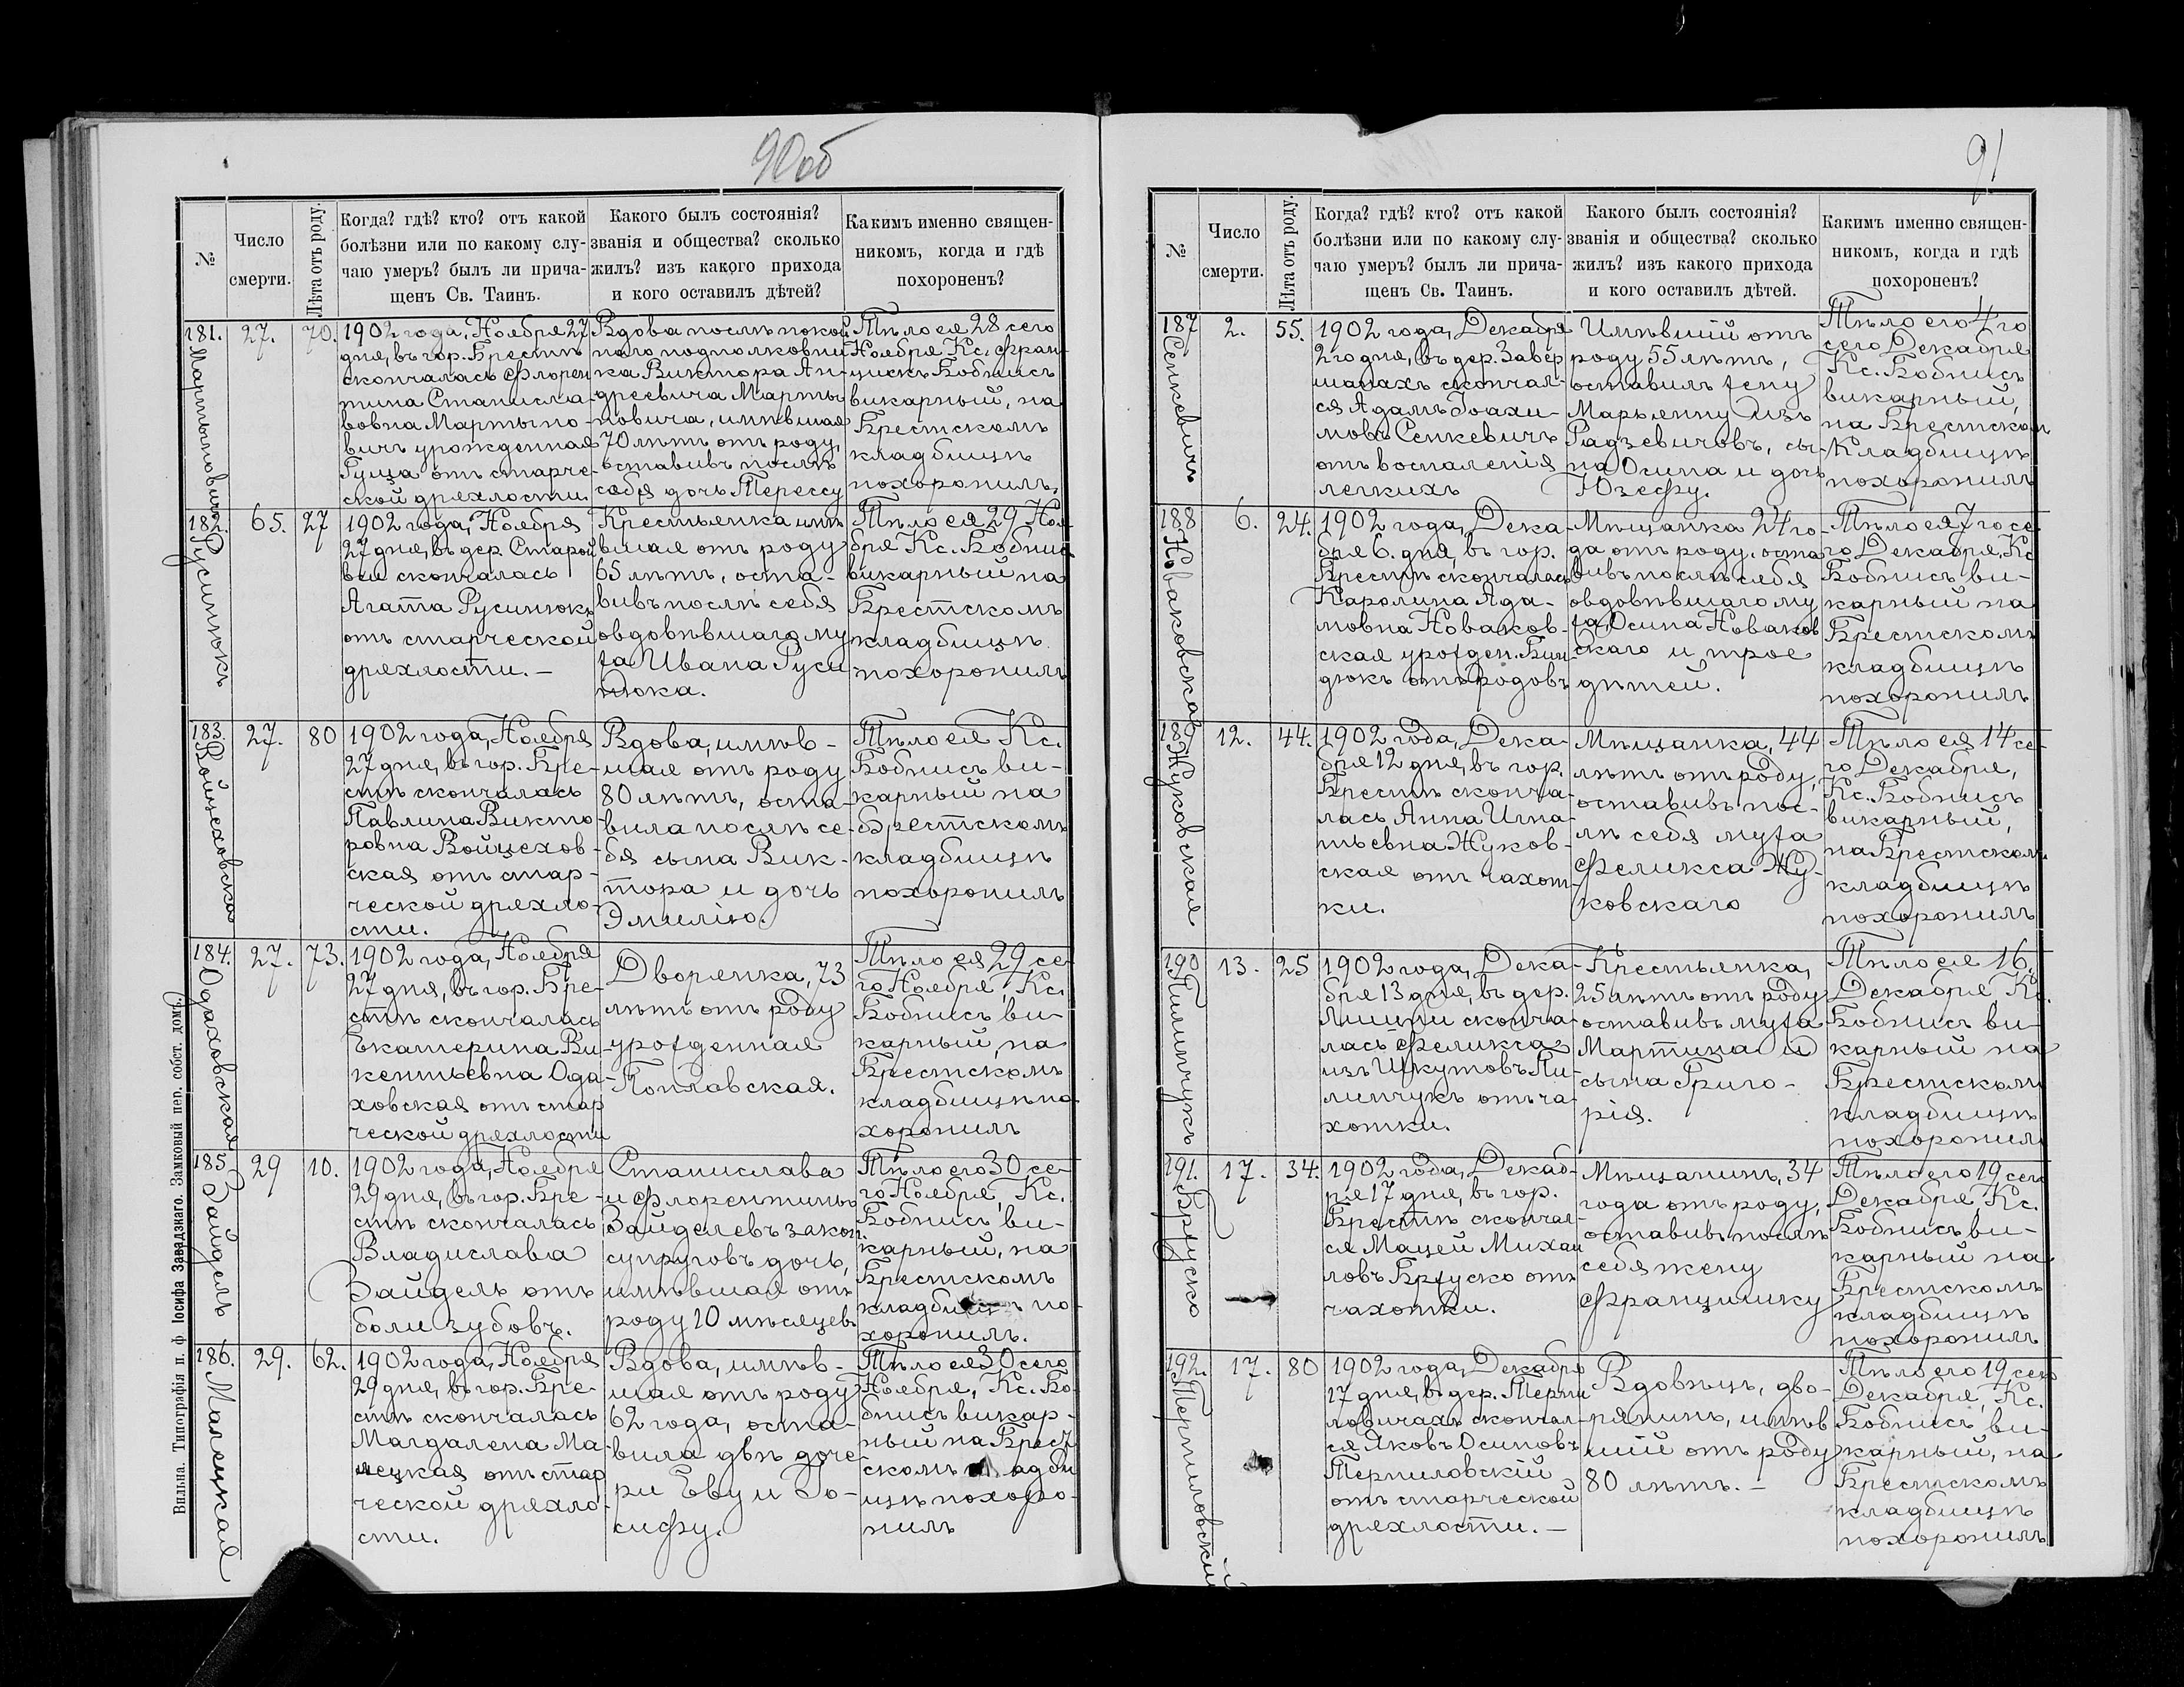 90об
№
Число
смерти.
Лѣта отъ роду.
Когда? гдѣ? кто? отъ какой
болѣзни или по какому слу-
чаю умеръ? былъ ли прича-
щенъ Св. Таинъ.
Какого былъ состоянія?
званія и общества? сколько
жилъ? изъ какого прихода
и кого оставилъ дѣтей?
Какимъ именно священ-
никомъ, когда и гдѣ
похороненъ?
181.
Мартыновичъ
27.
70.
1902 года, Ноября 27
дня, въ гор. Брестѣ
скончалась Флорен
тина Станисла-
вовна Мартыно-
вичъ урожденная
Гуща отъ старче-
ской дряхлости
Вдова послѣ покой
наго подполковни
ка Виктора Ан-
дреевича Марты
новича, имѣвшая
70 лѣтъ отъ роду,
оставивъ послѣ
себя дочь Терессу
Тѣло ея 28 сего
Ноября Кс. Фран-
цискъ Бобнисъ
викарный, на
Брестскомъ
кладбищѣ
похоронилъ.
182.
Русинюкъ
65.
27
1902 года, Ноября
27 дня, въ дер. Старой
вси скончалась
Агата Русинюкъ
отъ старческой
дряхлости. —
Крестьянка имѣ
вшая отъ роду
65 лѣтъ, оста-
вивъ послѣ себя
овдовѣвшаго му
жа Ивана Руси
нюка.
Тѣло ея 29 Ноя-
бря Кс. Бобнисъ
викарный на
Брестскомъ
кладбищѣ
похоронилъ
183.
Войцеховская
27.
80
1902 года, Ноября
27 дня, въ гор. Бре-
стѣ скончалась
Павлина Викто
ровна Войцехов-
ская отъ стар-
ческой дряхло-
сти.
Вдова, имѣв-
шая отъ роду
80 лѣтъ, оста-
вила послѣ се-
бя сына Вик-
тора и дочь
Эмилію.
Тѣло ея Кс.
Бобнисъ ви-
карный на
Брестскомъ
кладбищѣ
похоронилъ
184.
Одаховская
27.
73.
1902 года, Ноября
27 дня, въ гор. Бре-
стѣ скончалась
Екатерина Ви-
кентьевна Ода-
ховская отъ стар
ческой дряхлости
Дворянка, 73
лѣтъ отъ роду
урожденная
Поплавская.
Тѣло ея 29 се-
го Ноября, Кс.
Бобнисъ ви-
карный, на
Брестскомъ
кладбищѣ по-
хоронилъ
185
Зайдель
29
10.
1902 года, Ноября
29 дня, въ гор. Бре-
стѣ скончалась
Владислава
Зайдель отъ
боли зубовъ.
Станислава
и Флорентины
Зайделевъ закон.
супруговъ дочь,
имѣвшая отъ
роду 10 мѣсяцевъ
Тѣло его 30 се-
го Ноября, Кс.
Бобнисъ ви-
карный, на
Брестскомъ
кладбищѣ по-
хоронилъ.
186.
Малецкая
29.
62.
1902 года, Ноября
29 дня, въ гор. Бре-
стѣ скончалась
Магдалена Ма-
лецкая отъ стар
ческой дряхло-
сти.
Вдова, имѣв-
шая отъ роду
62 года, оста-
вила двѣ доче
ри Еву и Іо-
сифу.
Тѣло ея 30 сего
Ноября, Кс. Бо-
бнисъ викар-
ный на Брест
скомъ кладби
щѣ похоро-
нилъ
Вильна. Типографія п. ф. Іосифа Завадзкаго. Замковый пер. собст. домъ.
91
№
Число
смерти.
Лѣта отъ роду.
Когда? гдѣ? кто? отъ какой
болѣзни или по какому слу-
чаю умеръ? былъ ли прича-
щенъ Св. Таинъ.
Какого былъ состоянія?
званія и общества? сколько
жилъ? изъ какого прихода
и кого оставилъ дѣтей.
Какимъ именно священ-
никомъ, когда и гдѣ
похороненъ?
187
Сенкевичъ
2.
55.
1902 года, Декабря
2го дня, въ дер. Завер
шанахъ скончал-
ся Адамъ Іоахи-
мовъ Сенкевичъ
отъ воспаленія
легкихъ
Имѣвшій отъ
роду 55 лѣтъ,
оставилъ жену
Марьянну изъ
Радзевичовъ, сы-
на Осипа и дочь
Юзефу.
Тѣло его 4го
сего Декабря
Кс. Бобнисъ
викарный,
на Брестском
Кладбищѣ
похоронилъ
188
Новаковская
6.
24.
1902 года, Дека-
бря 6. дня, въ гор.
Брестѣ скончалась
Каролина Ада-
мовна Новаков-
ская урожден. Бин-
дюкъ отъ родовъ
Мѣщанка 24 го-
да отъ роду, оста
вивъ послѣ себя
овдовѣвшаго му
жа Осипа Новаков
скаго и трое
дѣтей.
Тѣло ея 7го се-
го Декабря, Кс
Бобнисъ ви-
карный на
Брестскомъ
кладбищѣ
похоронилъ
189
Жуковская
12.
44.
1902 года, Дека-
бря 12 дня, въ гор.
Брестѣ сконча-
лась Анна Игна-
тьевна Жуков-
ская отъ чахот-
ки.
Мѣщанка, 44
лѣтъ отъ роду,
оставивъ пос-
лѣ себя мужа
Феликса Жу-
ковскаго
Тѣло ея 14 се-
го Декабря,
Кс. Бобнисъ
викарный,
на Брестскомъ
кладбищѣ
похоронилъ
190
Пилипчукъ
13.
25
1902 года, Дека-
бря 13 дня, въ дер.
сконча-
лась Феликса
изъ Шкутовъ Пи-
липчукъ отъ ча-
хотки.
Крестьянка,
25 лѣтъ отъ роду
оставивъ мужа
Мартина и
сына Григо-
рія.
Тѣло ея 16.
Декабря, Кс.
Бобнисъ ви-
карный на
Брестскомъ
кладбищѣ
похоронилъ
191.
Брżуско
17.
34.
1902 года, Декаб-
ря 17 дня, въ гор.
Брестѣ скончал-
ся Мацей Михаи
ловъ Бржуско отъ
чахотки.
Мѣщанинъ, 34
года отъ роду,
оставивъ послѣ
себя жену
Францишку
Тѣло его 19 сего
Декабря, Кс.
Бобнисъ ви-
карный на
Брестскомъ
кладбищѣ
похоронилъ
192.
Терпиловскій
17.
80
1902 года, Декабря
17 дня, въ дер. Терпи
ловичахъ скончал-
ся Яковъ Осиповъ
Терпиловскій
отъ старческой
дряхлости. —
Вдовецъ, дво-
рянинъ, имѣв
шій отъ роду
80 лѣтъ. —
Тѣло его 19 сего
Декабря, Кс.
Бобнисъ ви-
карный, на
Брестскомъ
кладбищѣ
похоронилъ